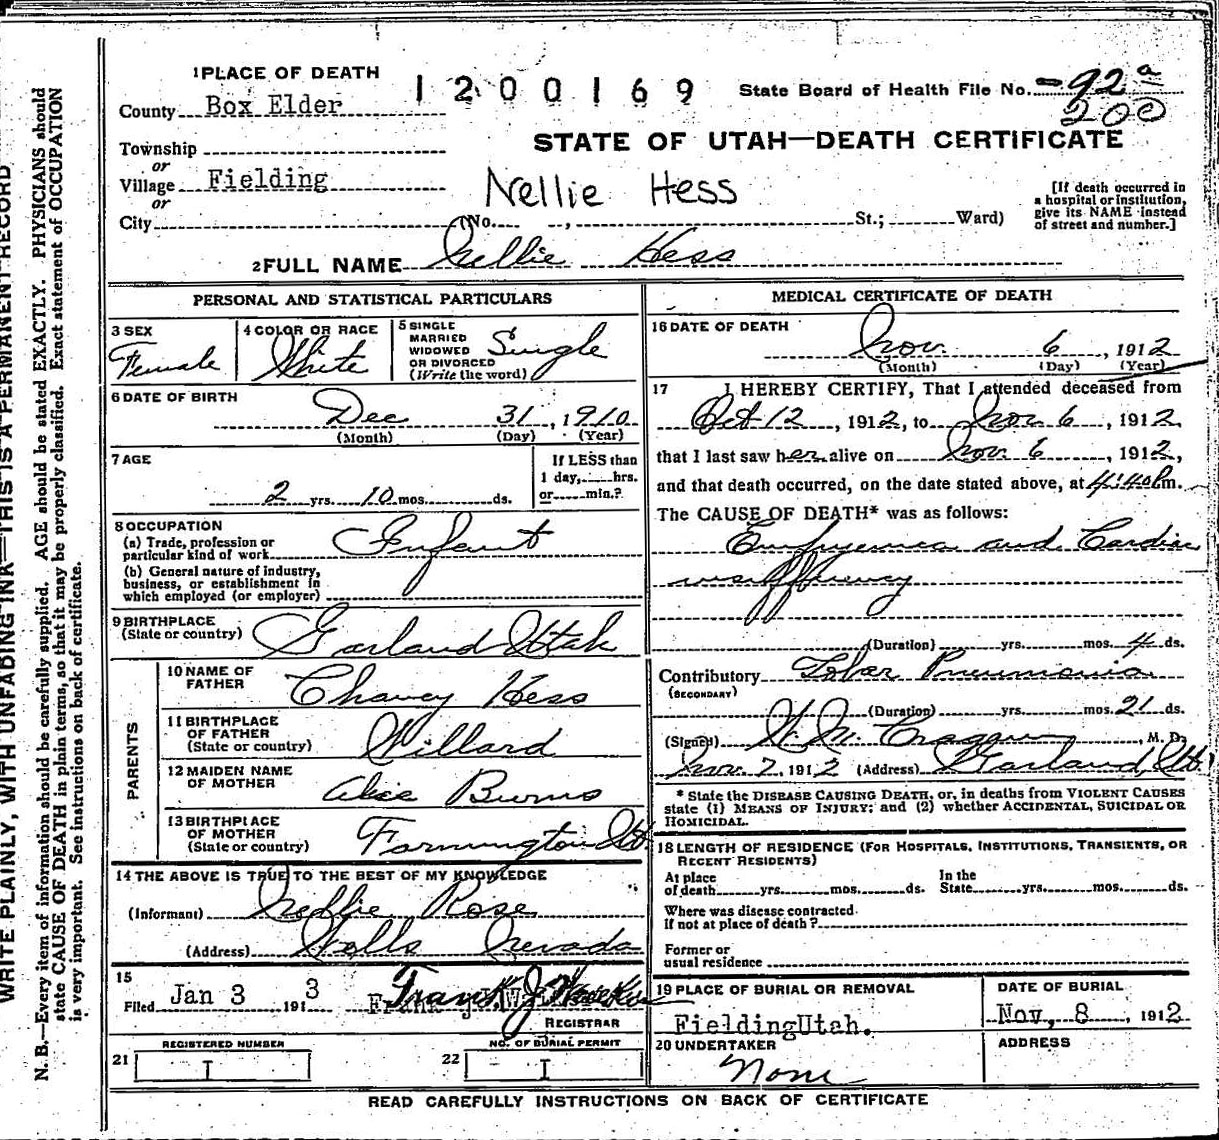 1 PLACE OF DEATH
1200169
State Board of Health File No. 92 a
200
County Box Elder
STATE OF UTAH—DEATH CERTIFICATE
Township
or
Village Fielding
or
Nellie Hess
City (No. , St.; Ward)
[If death occurred in
a hospital or institution,
give its NAME instead
of street and number.]
2 FULL NAME Nellie Hess
PERSONAL AND STATISTICAL PARTICULARS
3 SEX
Female
4 COLOR OR RACE
White
5 SINGLE
MARRIED
WIDOWED
OR DIVORCED
(Write the word)
Single
6 DATE OF BIRTH
Dec 31, 1910
(Month) (Day) (Year)
7 AGE
2 yrs. 10 mos. ds.
If LESS than
1 day, hrs.
or min.?
8 OCCUPATION
(a) Trade, profession or
particular kind of work Infant
(b) General nature of industry,
business, or establishment in
which employed (or employer)
9 BIRTHPLACE
(State or country) Garland Utah
PARENTS
10 NAME OF
FATHER Chancy Hess
11 BIRTHPLACE
OF FATHER
(State or country) Willard
12 MAIDEN NAME
OF MOTHER Alice Burns
13 BIRTHPLACE
OF MOTHER
(State or country) Farmington Ut.
14 THE ABOVE IS TRUE TO THE BEST OF MY KNOWLEDGE
(Informant) Nellie Rose
(Address) Wells Nevada
15
Filed Jan 3 1913 Frank J.
REGISTRAR
REGISTERED NUMBER
21 I
NO. OF BURIAL PERMIT
22 I
MEDICAL CERTIFICATE OF DEATH
16 DATE OF DEATH
Nov. 6, 1912
(Month) (Day) (Year)
17 I HEREBY CERTIFY, That I attended deceased from
Oct 12, 1912, to Nov 6, 1912,
that I last saw her alive on Nov. 6, 1912,
and that death occurred, on the date stated above, at 4:40 P.m.
The CAUSE OF DEATH* was as follows:
Empyemea and Cardiac
insufficiency
(Duration) yrs. mos. 4 ds.
Contributory Lobar Pneumonia
(SECONDARY)
(Duration) yrs. mos. 21 ds.
(Signed) , M. D.
Nov 7, 1912 (Address) Garland, Ut.
* State the DISEASE CAUSING DEATH, or, in deaths from VIOLENT CAUSES
state (1) MEANS OF INJURY; and (2) whether ACCIDENTAL, SUICIDAL OR
HOMICIDAL.
18 LENGTH OF RESIDENCE (FOR HOSPITALS, INSTITUTIONS, TRANSIENTS, OR
RECENT RESIDENTS)
At place
of death yrs. mos. ds.
In the
State yrs. mos. ds.
Where was disease contracted
If not at place of death?
Former or
usual residence
19 PLACE OF BURIAL OR REMOVAL
Fielding Utah.
DATE OF BURIAL
Nov, 8, 1912
20 UNDERTAKER
None
ADDRESS
READ CAREFULLY INSTRUCTIONS ON BACK OF CERTIFICATE
WRITE PLAINLY, WITH UNFADING INK—THIS IS A PERMANENT RECORD
N. B.—Every item of information should be carefully supplied. AGE should be stated EXACTLY. PHYSICIANS should
state CAUSE OF DEATH in plain terms, so that it may be properly classified. Exact statement of OCCUPATION
is very important. See instructions on back of certificate.